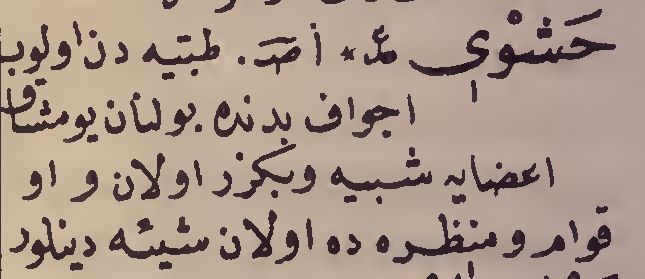 حَشْوِي عـ* أ صـ. طبيّه دن اولوب
اجواف بدنده بولنان يومشاق
اعضايه شبيه وبكزر اولان و او
قوام و منظره ده اولان شيئه دينلور